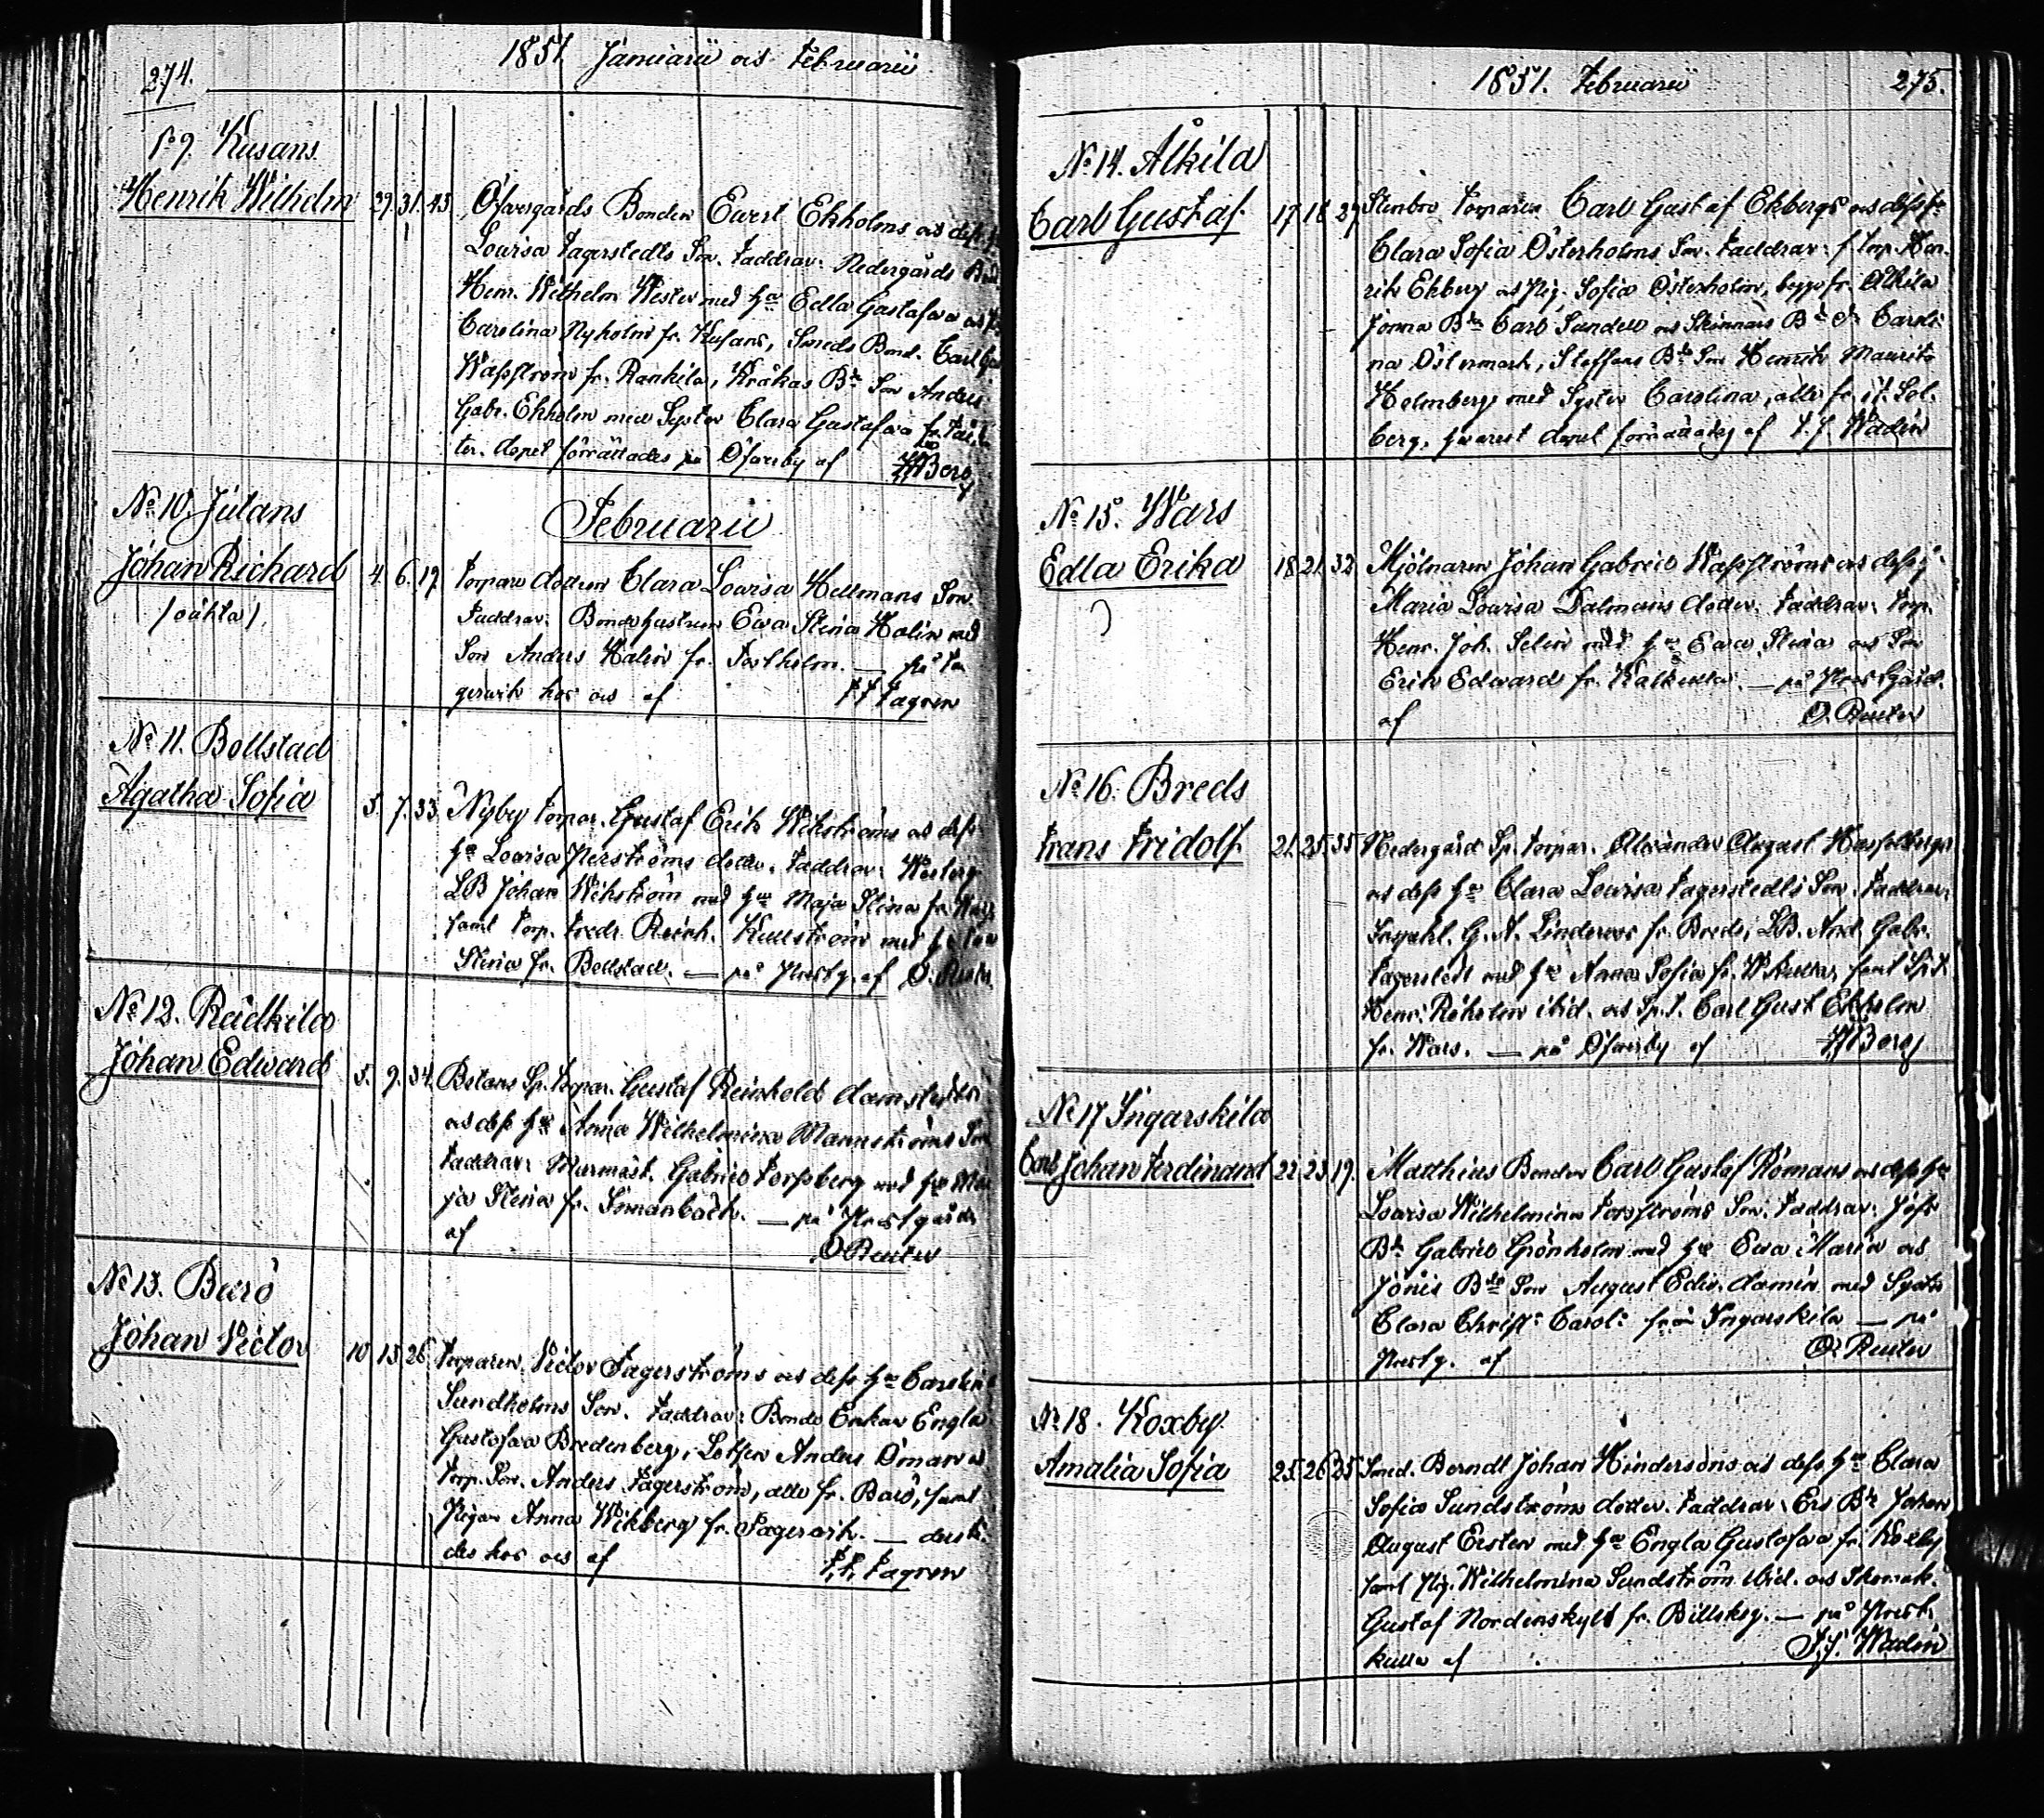 274.
1851. Januarii och Februarii
No 9. Kusans
Henrik Wilhelm 29. 31. 43. Öfvergårds Bonden Evert Ekholms och dess h
Lovisa Fagerstedts Son. Faddrar: Nedergårds Bond.
Henr. Wilhelm Wester med hu Edla Gustafva och
Carolina Nyholm fr. Kusans, Smeds Bond. Carl
Wassström fr. Rankila, Kråkas Bde Son Anders
Gabr. Ekholm med Syster Clara Gustafva fr.
ter. dopet förrättades på Öfverby af Berg
No 10. Jutans
Februarii
Johan Richard 4. 6. 19. Torpare dottren Clara Lovisa Hellmans Son.
(oäkta)
Faddrar: Bondehustrun Eva Stina Malin med
Son Anders Malin fr. Tostholm. — på Fa
gervik hos och af F.F. Fagren
No 11. Bollstad
Agatha Sofia 5. 7. 33. Nyby torpar. Gustaf Erik Wikströms och dess
hu Lovisa Perströms dotter. Faddrar: Westerg.
LB Johan Wikström med hu Maja Stina fr.
samt torp. Fredr. Reinh. Kullström med h
Stina fr. Bollstad. — på Prestg. af O. Reuter
No 12. Rådkila
Johan Edward 5. 9. 34. Bstans Sp. torpar. Gustaf Reinhold Damsters
och dess hu Anna Wilhelmina Mannströms Son
Faddrar: Murmäst. Gabriel Forssberg med hu Ma
ja Stina fr. Innanbäck. — på Prestgård
af O Reuter
No 13. Barö
Johan Victor 10 13 26 Torparen Victor Fagerströms och dess hu Carolin
Sundholms Son. Faddrar: Bonde Enkan Engla
Gustafva Bredenberg, Lotsen Anders Öman o
torp. Son. Anders Fagerström, alla fr. Barö, samt
Pigan Anna Wikberg fr. Fagervik. —
des hos och af F.F. Fagren
1851. Februarii 275.
No 14. Ålkila
Carl Gustaf 17 18 27 Stenbro torparen Carl Gustaf Ekbergs och dess hu
Clara Sofia Österholms Son. Faddrar: f. torp. Hen
rik Ekberg och Pig. Sofia Österholm, begge fr. Ålkila
Jonna Bde Carl Sundell och Skinnars Bde Dr Caroli
na Östermark, Staffans Bde Son Henrik Maurits
Holmberg med Syster Carolina, alla fr. Sol
berg, hvarest dopet förrättades af F.J. Wadén
No 15. Wars
Edla Erika 18 21 32 Mjölnaren Johan Gabriel Wassströms och dess h
Maria Lovisa Dalmans dotter. Faddrar: torp.
Henr. Joh. Selin med hu Eva Stina och Son
Erik Edward fr. — på Prestgård.
af O. Reuter
No 16. Breds
Frans Fridolf 21. 25. 35 Nedergård Sp. torpar. Alexander August Hasselbergs
och dess hu Clara Lovisa Fagerstedts Son. Faddrar
G. A. Linderoos fr. Breds, LB. And. Gabr.
Fagerstedt med hu Anna Sofia fr. samt Sp.t.
Henr. Röholm ibid. och Sp.t. Carl Gust Ekholm
fr. Wars. — på Öfverby af Berg
No 17 Ingarskila
Carl Johan Ferdinand 22 23 19. Matthias Bonden Carl Gustaf Römans och dess hu
Lovisa Wilhelmina Forsströms Son. Faddrar: Jofs
Bde Gabriel Grönholm med hu Eva Maria och
Jönis Bde Son August Edv. Damén med Syster
Clara Christ: Carol: från Ingarskila — på
Prestg. af O. Reuter
No 18. Koxby
Amalia Sofia 25 26 25 Smed. Berndt Johan Hindersons och dess hu Clara
Sofia Sundströms dotter. Faddrar: Ers Bde Johan
August Ersten med hu Engla Gustafva fr. Koxby
samt Pig. Wilhelmina Sundström ibid. och Skomak.
Gustaf Nordenskyld fr. Billskog. — på Prest
kulla af F.J. Wadén